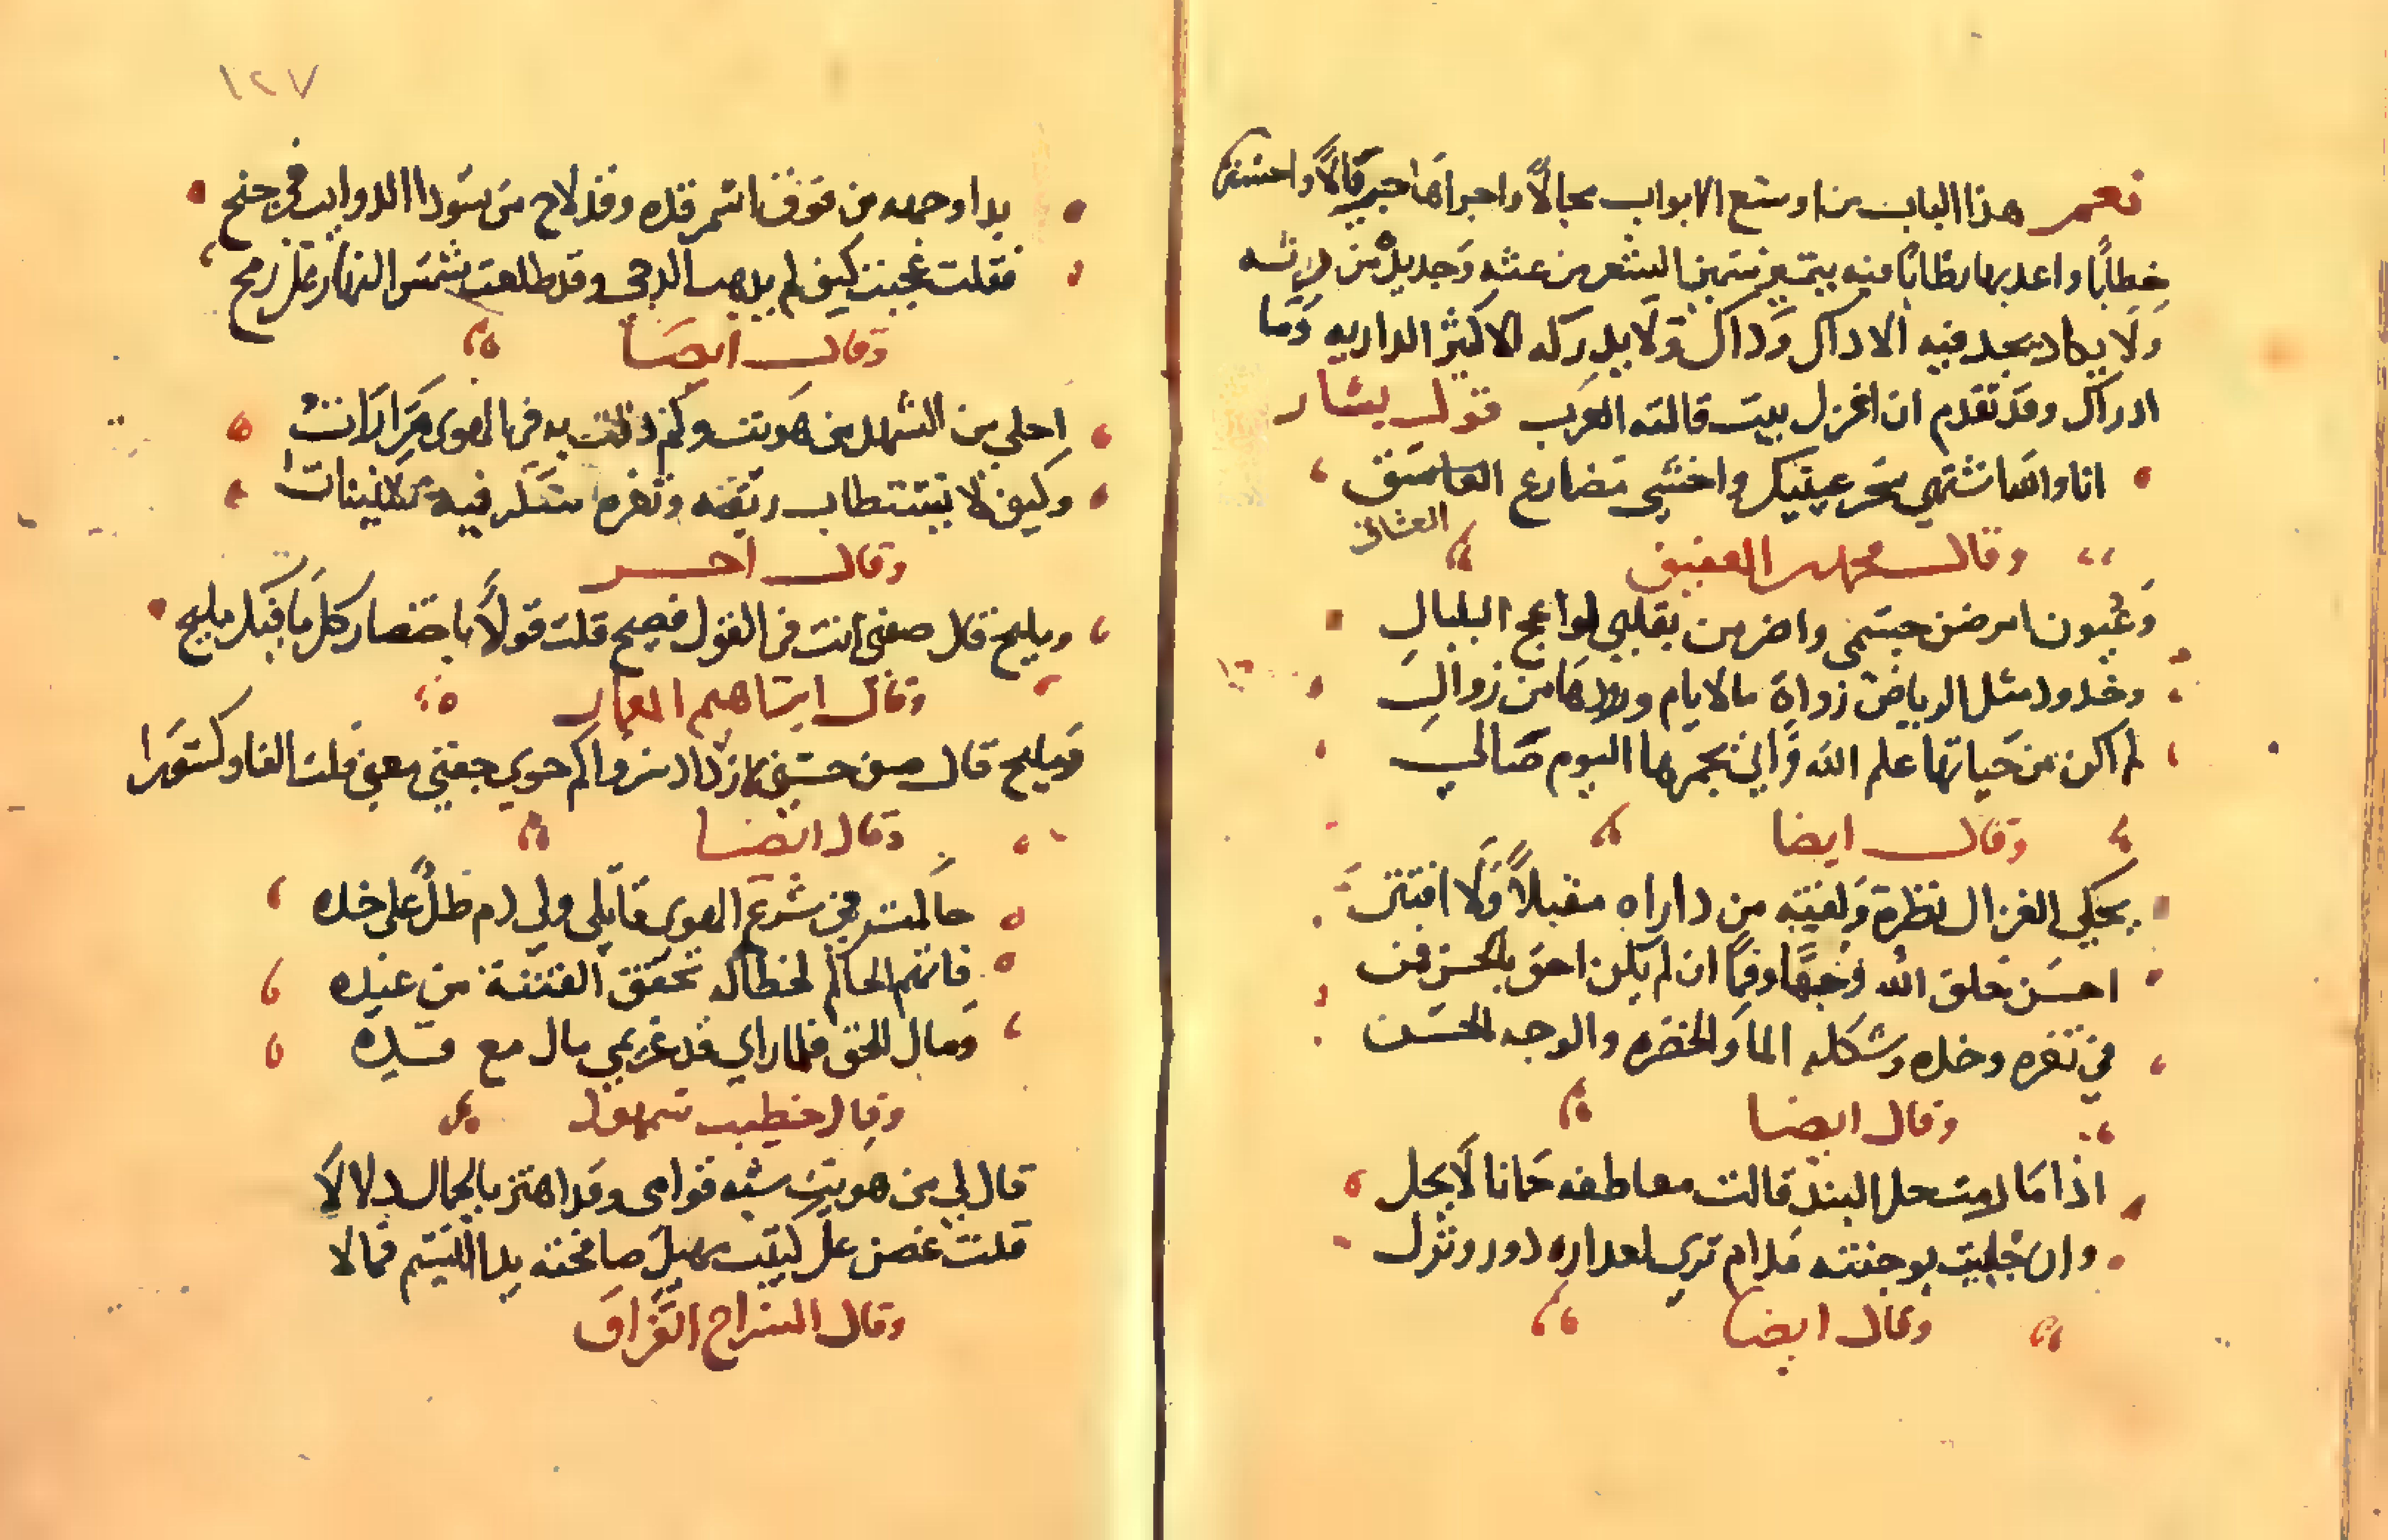 نعم هذا الباب من اوسع الابواب مجالاً واجراها جبر قالاً واحسن
خطابا واعد بها رظابا منه يتميز سمين الشعر من غثه وجديده من رثه
ولا يكاد يجد فيه الادراك وَداك ولا يدركه الاكثر الداريه وَمَا
ادراك وقد تقدم ان اغزل بيت قالته العرب قول بشار
انا والله اشتهي سحر عينيك واخشي مصارع العاشق
العشاق
وقال محمد بن العفيف
وَعُيون امرضن جسمي واضرمن بقلبي لواعج البلبال
وخدود مثل الرياض زواه ما لايام وردها من زوال
لم اكن من جناتها علم الله وَاني بحرها اليوم صَالي
وقال ايضا
يحكي الغزال نظرة وَلفتة من ذا راه مقبلاً وَلا افتتن
احسَن خلق الله وَجهاً وفماً ان لم يكن احق بالحسن فمن
في ثغره وخده وشكله الما وَالخضره والوجه الحسَن
وقال ايضا
اذا مَا رمت حل البند قالت معاطفه حمانا لَا يحل
وان جليت بوجنته مدام تري لعداره دور ونزل
وقال ايضا
١٢٧
بدا وجهه من فوف اسمر قده وقد لاح من سَود الدوايب في جنح
فقلت عجبت كيف لم يدهب الدجي وقد طلعت شمس النهار علي رمح
وقال ايضَا
احلي من الشهد من هَويت وكم ذلت به في الهوي مَرارَات
وكيف لا تستطاب ريقته وثغره سكر فيه سكينات
وقال اخر
ومليح قال صفني انت في القول فصيح قلت قولاً باختصار كل مَا فيك مليح
وقال ابراهيم المعمار
وَمليح قال صف حسني لازداد سروا كم حوي جفني معني قلت الفا وكسُورا
وقال ايضا
حاكمت في شرع الهوي قاتلي ولي دم طلٌ على خده
فاتهم الحاكم لخطا له تحقق الفتنة من عنده
وَمال للحق فلما راي قد غريمي مال مع قده
وقال خطيب سمهود
قال لي من هَويت شبه قوامي وقد اهتز بالجمال دلالاَ
قلت غصن علي كثيب مهيل صافحته يد النسيم فمالا
وقال السراج الوَرَاق